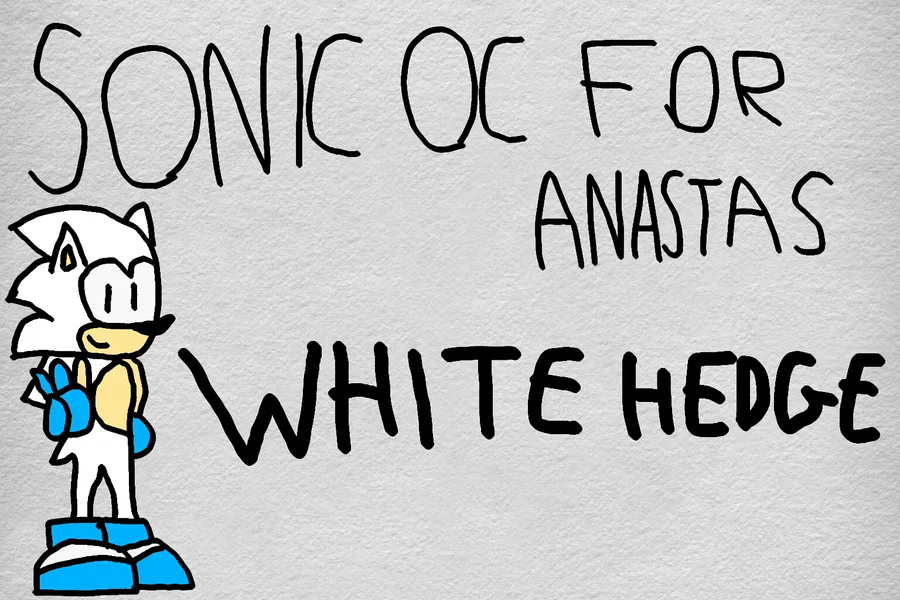 SONIC OC FOR
ANASTAS
WHITE HEDGE